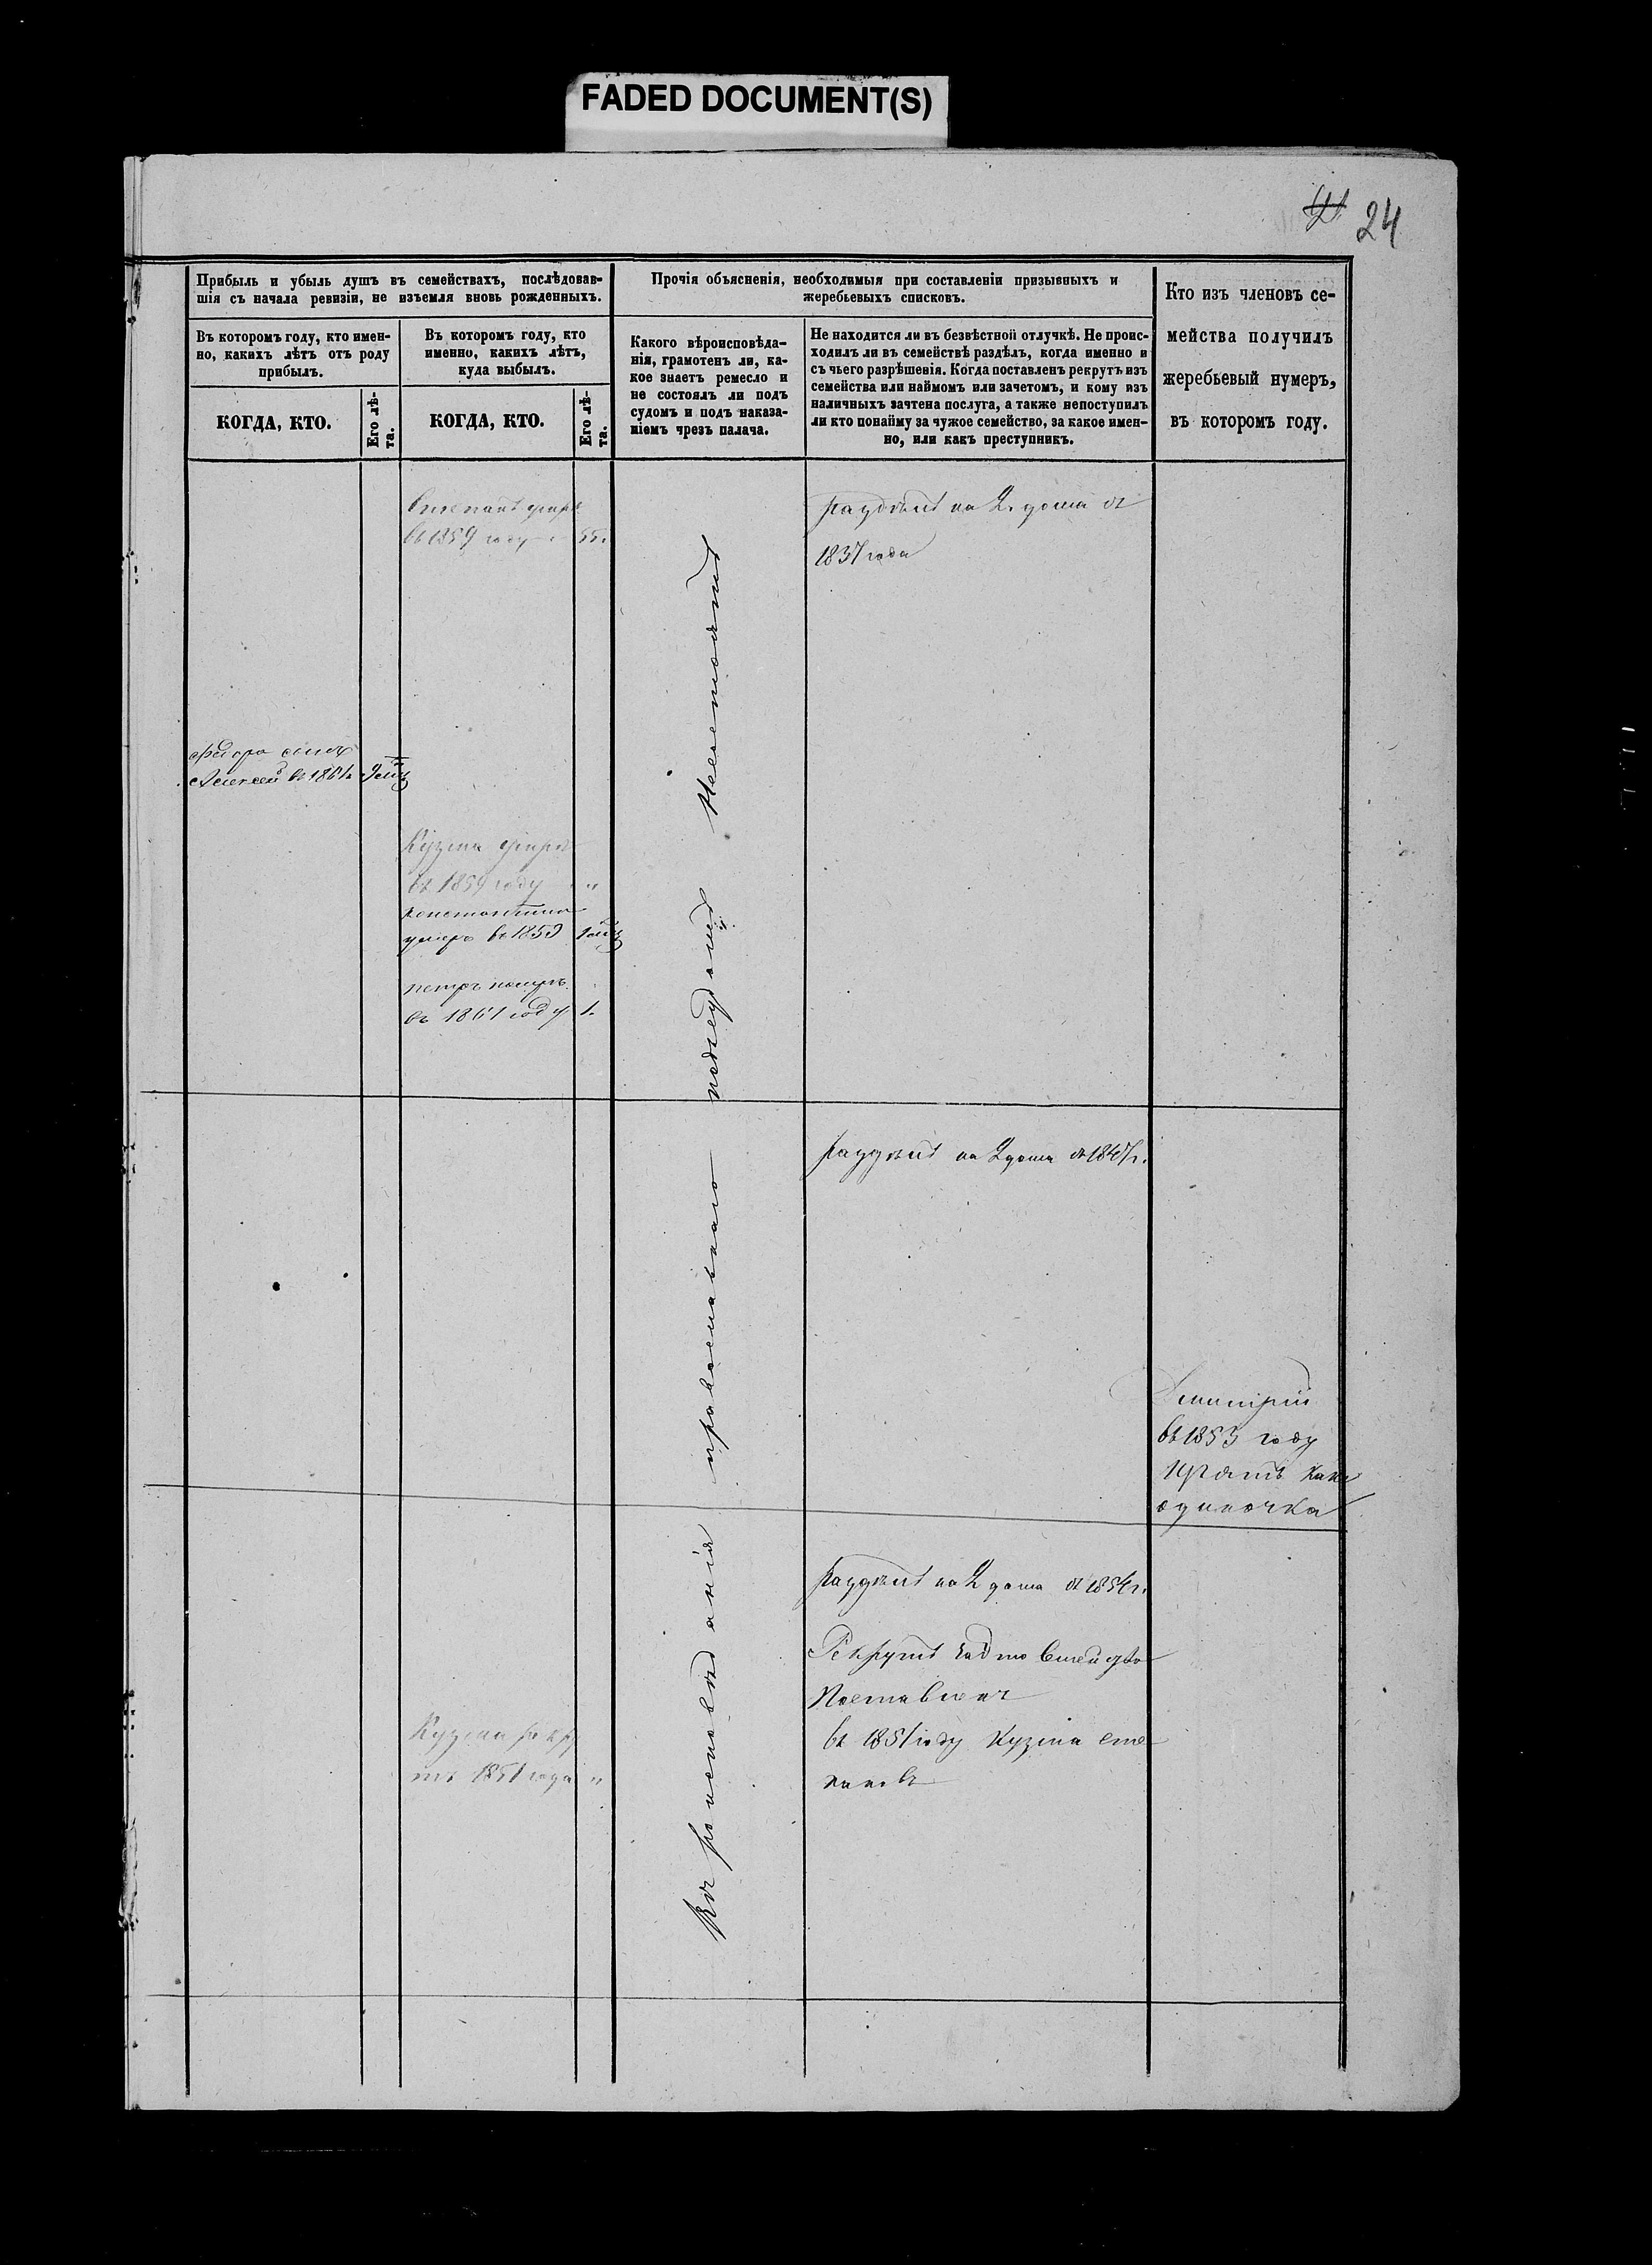 FADED DOCUMENT(S)
24
Прибыль и убыль душъ въ семействахъ, послѣдовав-
шія съ начала ревизіи, не изъемля вновь рожденныхъ.
Въ которомъ году, кто имен-
но, какихъ лѣтъ отъ роду
прибылъ.
КОГДА, КТО.
Его лѣ-
та.
Въ которомъ году, кто
именно, какихъ лѣтъ,
куда выбылъ.
КОГДА, КТО.
Его лѣ-
та.
Прочія объясненія, необходимыя при составленіи призывныхъ и
жеребьевыхъ списковъ.
Какого вѣроисповѣда-
нія, грамотенъ ли, ка-
кое знаетъ ремесло и
не состоялъ ли подъ
судомъ и подъ наказа-
ніемъ чрезъ палача.
Не находится ли въ безвѣстной отлучкѣ. Не проис-
ходилъ ли въ семействѣ раздѣлъ, когда именно и
съ чьего разрѣшенія. Когда поставленъ рекрутъ изъ
семейства или наймомъ или зачетомъ, и кому изъ
наличныхъ зачтена послуга, а также непоступилъ
ли кто понайму за чужое семейство, за какое имен-
но, или какъ преступникъ.
Кто изъ членовъ се-
мейства получилъ
жеребьевый нумеръ,
въ которомъ году.
умеръ
въ 1859 году 55.
раздѣлъ на 2. дома съ
1837 года
Федора сынъ
Алексей въ 1861
Кузма умеръ
въ 1859 году "
Константинъ
умеръ въ 1859
петръ померъ
въ 1861 году 1.
раздѣлъ на 2 дома съ
Дмитрій
въ 1853 году
какъ
одиночка
раздѣлъ на 2 дома съ 1854 г.
Рекрутъ
Поставленъ
въ 1851 году Кузма Сте
пановъ
Кузма рекру
тъ 1851 года "
вѣроисповѣданія православнаго подсудомъ несостоялъ